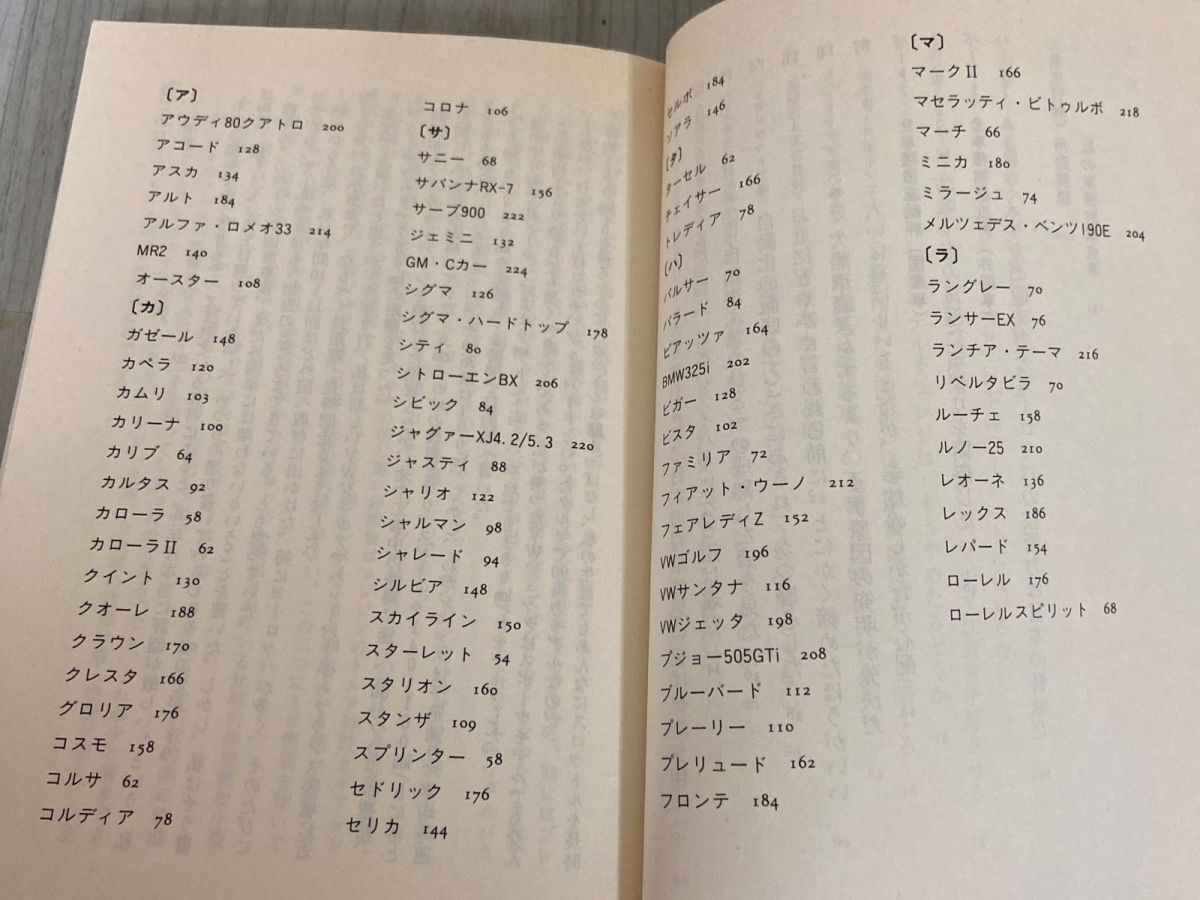 〔ア〕
アウディ80クアトロ 200
アコード 128
アスカ 134
アルト 184
アルファ・ロメオ33 214
MR2 140
オースター 108
〔カ〕
ガゼール 148
カペラ 120
カムリ 103
カリーナ 100
カリブ 64
カルタス 92
カローラ 58
カローラⅡ 62
クイント 130
クオーレ 188
クラウン 170
クレスタ 166
グロリア 176
コスモ 158
コルサ 62
コルディア 78
コロナ 106
〔サ〕
サニー 68
サバンナRX-7 156
サーブ900 222
ジェミニ 132
GM・Cカー 224
シグマ 126
シグマ・ハードトップ 178
シティ 80
シトローエンBX 206
シビック 84
ジャグァーXJ4.2/5.3 220
ジャスティ 88
シャリオ 122
シャルマン 98
シャレード 94
シルビア 148
スカイライン 150
スターレット 54
スタリオン 160
スタンザ 109
スプリンター 58
セドリック 176
セリカ 144
セルボ 184
ソアラ 146
〔タ〕
ターセル 62
チェイサー 166
トレディア 78
〔ハ〕
パルサー 70
バラード 84
ピアッツァ 164
BMW325i 202
ビガー 128
ビスタ 102
ファミリア 72
フィアット・ウーノ 212
フェアレディZ 152
VWゴルフ 196
VWサンタナ 116
VWジェッタ 198
プジョー505GTi 208
ブルーバード 112
プレーリー 110
プレリュード 162
フロンテ 184
〔マ〕
マークⅡ 166
マセラッティ・ビトゥルボ 218
マーチ 66
ミニカ 180
ミラージュ 74
メルツェデス・ベンツ190E 204
〔ラ〕
ラングレー 70
ランサーEX 76
ランチア・テーマ 216
リベルタビラ 70
ルーチェ 158
ルノー25 210
レオーネ 136
レックス 186
レパード 154
ローレル 176
ローレルスピリット 68